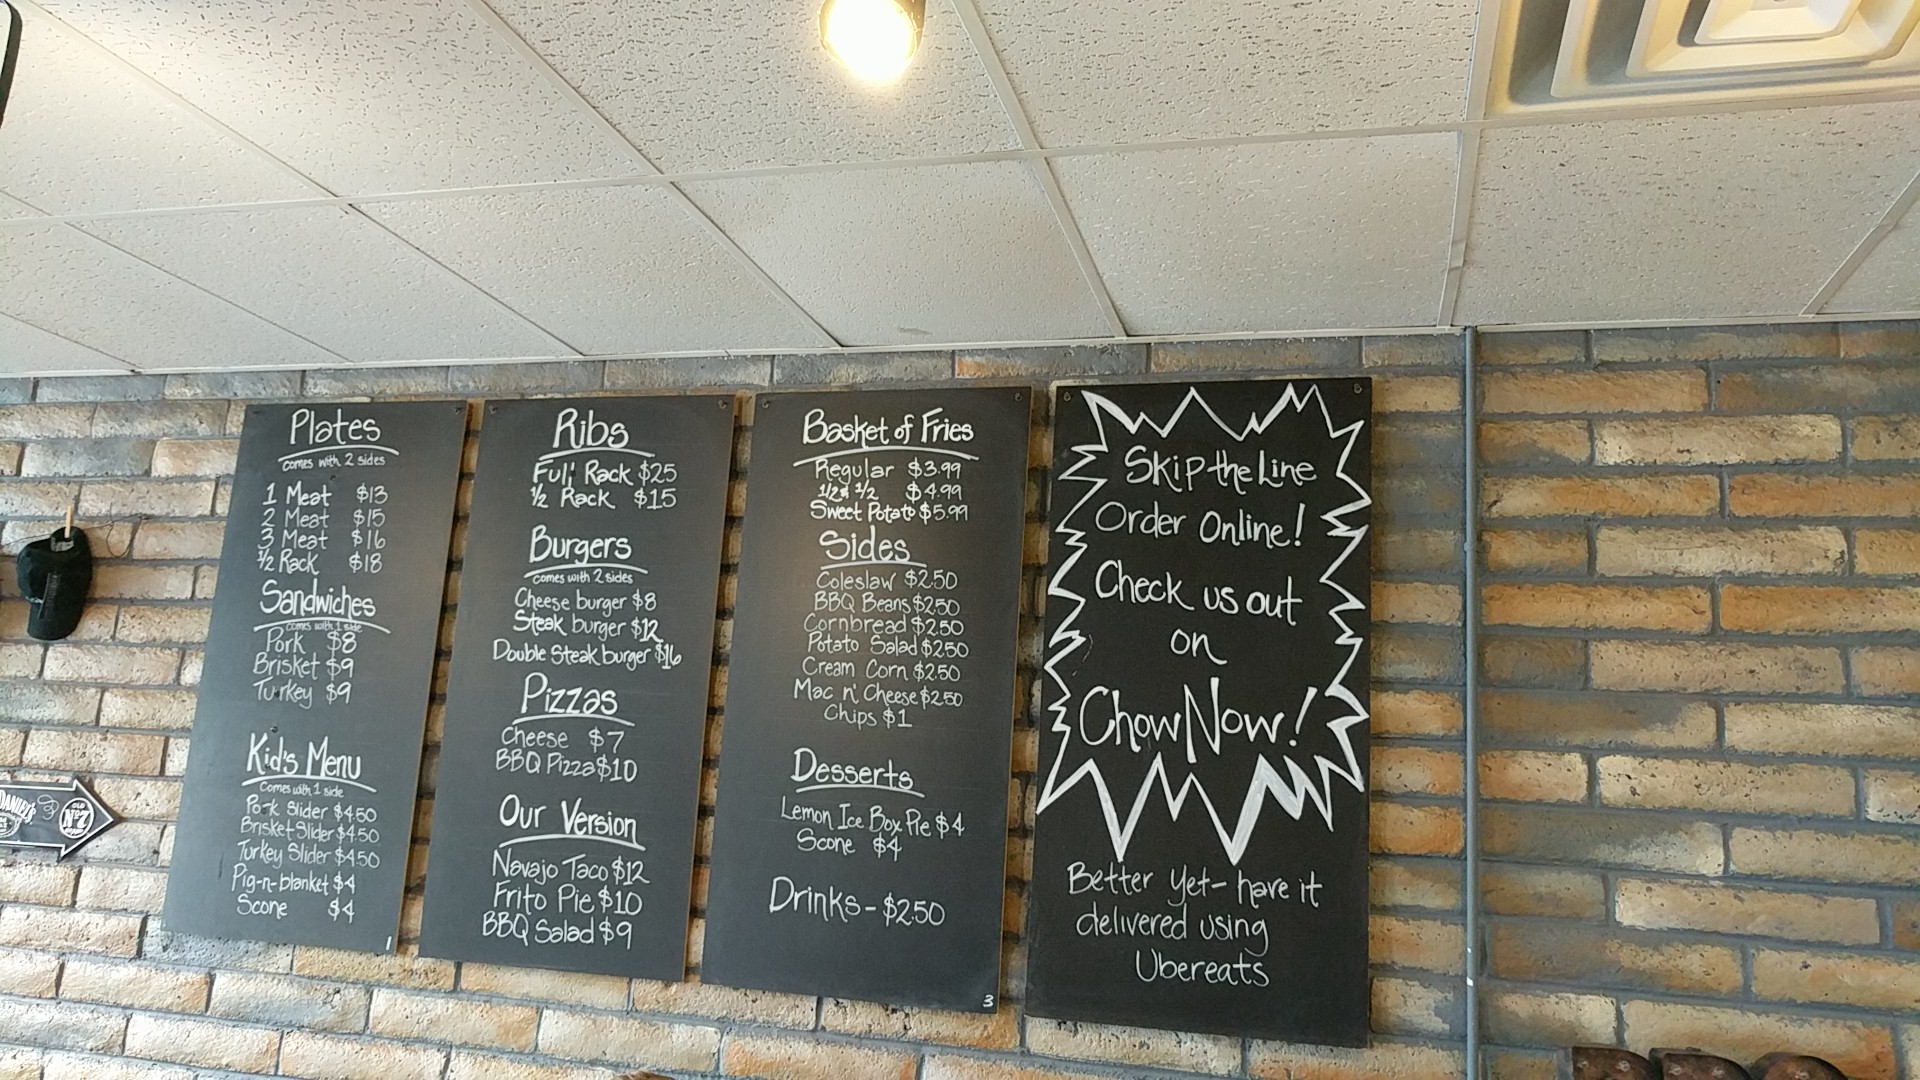 Plates
comes with 2 sides
1 Meat $13
2 Meat $15
3 Meat $16
1/2 Rack $18
Sandwiches
comes with 1 side
Pork $8
Brisket $9
Turkey $9
Kid's Menu
Comes with 1 side
Pork Slider $4.50
Brisket Slider $4.50
Turkey Slider $4.50
Pig-n-blanket $4
Scone $4
1
Ribs
Full Rack $25
1/2 Rack $15
Burgers
comes with 2 sides
Cheese burger $8
Steak burger $12
Double Steak burger $16
Pizzas
Cheese $7
BBQ Pizza $10
Our Version
Navajo Taco $12
Frito Pie $10
BBQ Salad $9
Basket of Fries
Regular $3.99
1/2 & 1/2 $4.99
Sweet Potato $5.99
Sides
Coleslaw $2.50
BBQ Beans $2.50
Cornbread $2.50
Potato Salad $2.50
Cream Corn $2.50
Mac n' Cheese $2.50
Chips $1
Desserts
Lemon Ice Box Pie $4
Scone $4
Drinks - $2.50
3
Skip the Line
Order Online!
Check us out
on
ChowNow!
Better Yet - have it
delivered using
Ubereats
DANIEL'S
OLD
No 7